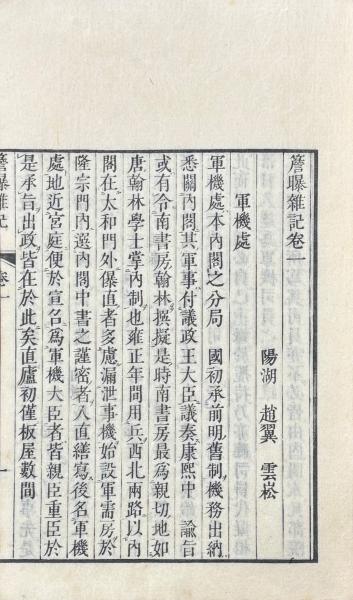 簷曝雜記卷一
陽湖 趙翼 雲崧
軍機處
軍機處本內閣之分局 國初承前明舊制機務出納
悉關內閣其軍事付議政王大臣議奏康熙中 諭旨
或有令南書房翰林撰擬是時南書房最為親切地如
唐翰林學士掌內制也雍正年間用兵西北兩路以內
閣在太和門外儤直者多慮漏泄事機始設軍需房於
隆宗門內選內閣中書之謹密者入直繕寫後名軍機
處地近宮庭便於宣召為軍機大臣者皆親臣重臣於
是承旨出政皆在於此矣直廬初僅板屋數間
簷曝雜記 卷一 一